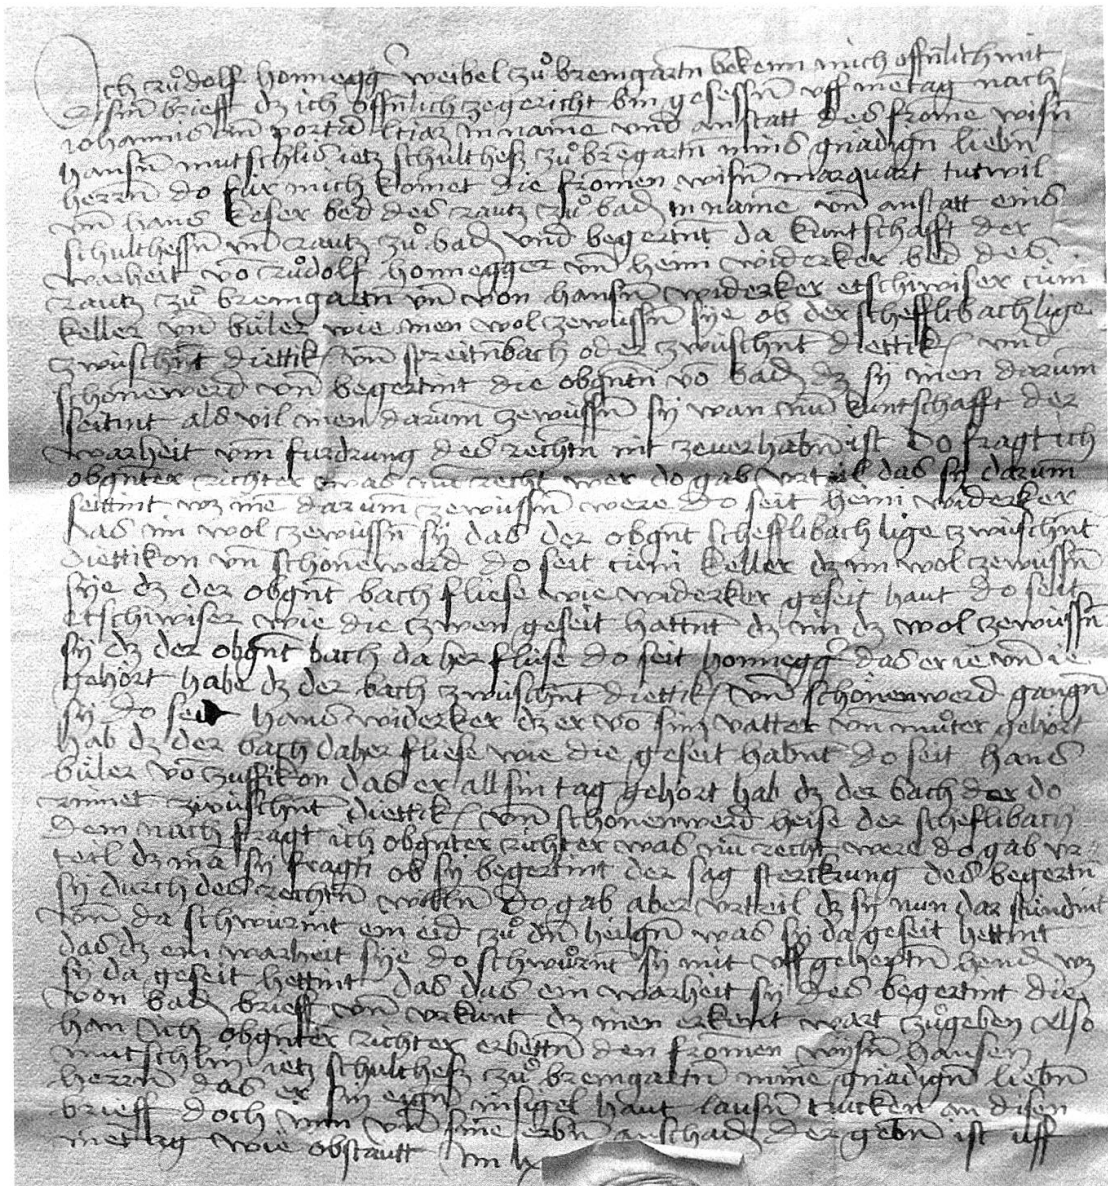 Ich Růdolf honnegg weibel zů bremgartn bekenn mich offnlich mit
disem brieff dz ich offnlich ze gericht bin gesessn uff mētag nach
iohannis an portā ltiār in name und an statt des frōme wisn
hansn mutschlis ietz schultheß zů brēgartn mins gnādign liebn
herrn do für mich komet die fromen wisn marquart tutwil
vn hans keser bed des rautz zů badn in name vn anstatt eins
schulthessn vn rautz zů badn und begertnt da kuntschafft der
warheit vō Růdolf honnegger vn heini widerker bed des
rautz zů bremgartn vn von hansn widerker etschiwiser cůni
keller vn büler wie inen wol ze wüssn sye ob der schefflibach lige
zwüschnt diettikn vn spreitnbach oder zwüschnt diettikn und
schönewerd vn begertint die obgntn vō badn dz sy inen darum
seitint als vil inen darum ze wüssn sy wan nū kuntschafft der
warheit vm furdrung des rechtn nit ze verhabn ist do fragt ich
obgnter richter was nū recht wer do gab urteil das sy darum
seittint wz inē darum ze wüssn were do seit heini widerker
das im wol ze wüssn sy das der obgnt schefflibach lige zwüschnt
diettikon vn schönewerd do seit cůni keller dz im wol ze wüssn
sye dz der obgnt bach fliese wie widerker geseit haut do seit
etschiwiser wie die zwen geseit hattnt dz im dz wol ze wüssn
sy dz der obgnt bach da her fliese do seit honnegg das er ie vn ie
gehört habe dz der bach zwüschnt diettikn vn schönenwerd gangn
sy do seit hans widerker dz er vō sim vatter vn můter gehört
hab dz der bach daher fliese wie die geseit habnt do seit hans
büler vō zuffikon das er all sin tag gehört hab dz der bach der do
rinnet zwüschnt diettikn vn schonenwerd heise der scheflibach
dem nach fragt ich obgnter richter was nū recht were do gab ur
teil dz mā sy fragti ob sy begertint der sag sterckrung des begertn
sy durch des rechtn willn do gab aber urteil dz sy nun dar stündint
vnn da schwürint ein eid zů dn heilgn was sy da geseit hettint
das dz ein warheit sye do schwůrnt sy mit uff geheptn hendn wz
sy da geseit hettint das das ein warheit sy des begertint die
von badn brieff vn urkunt dz inen erkent wart zů geben Also
han ich obgnter richter erbettn den fromen wysn hansen
mutschlin ietz schultheß zů bremgartn mine gnādign liebn
herrn das er sin eign insigel haut lausn trucken an disen
brieff doch im vn sinē erbn an schadn der gebn ist uff
mētag wie obstautt im